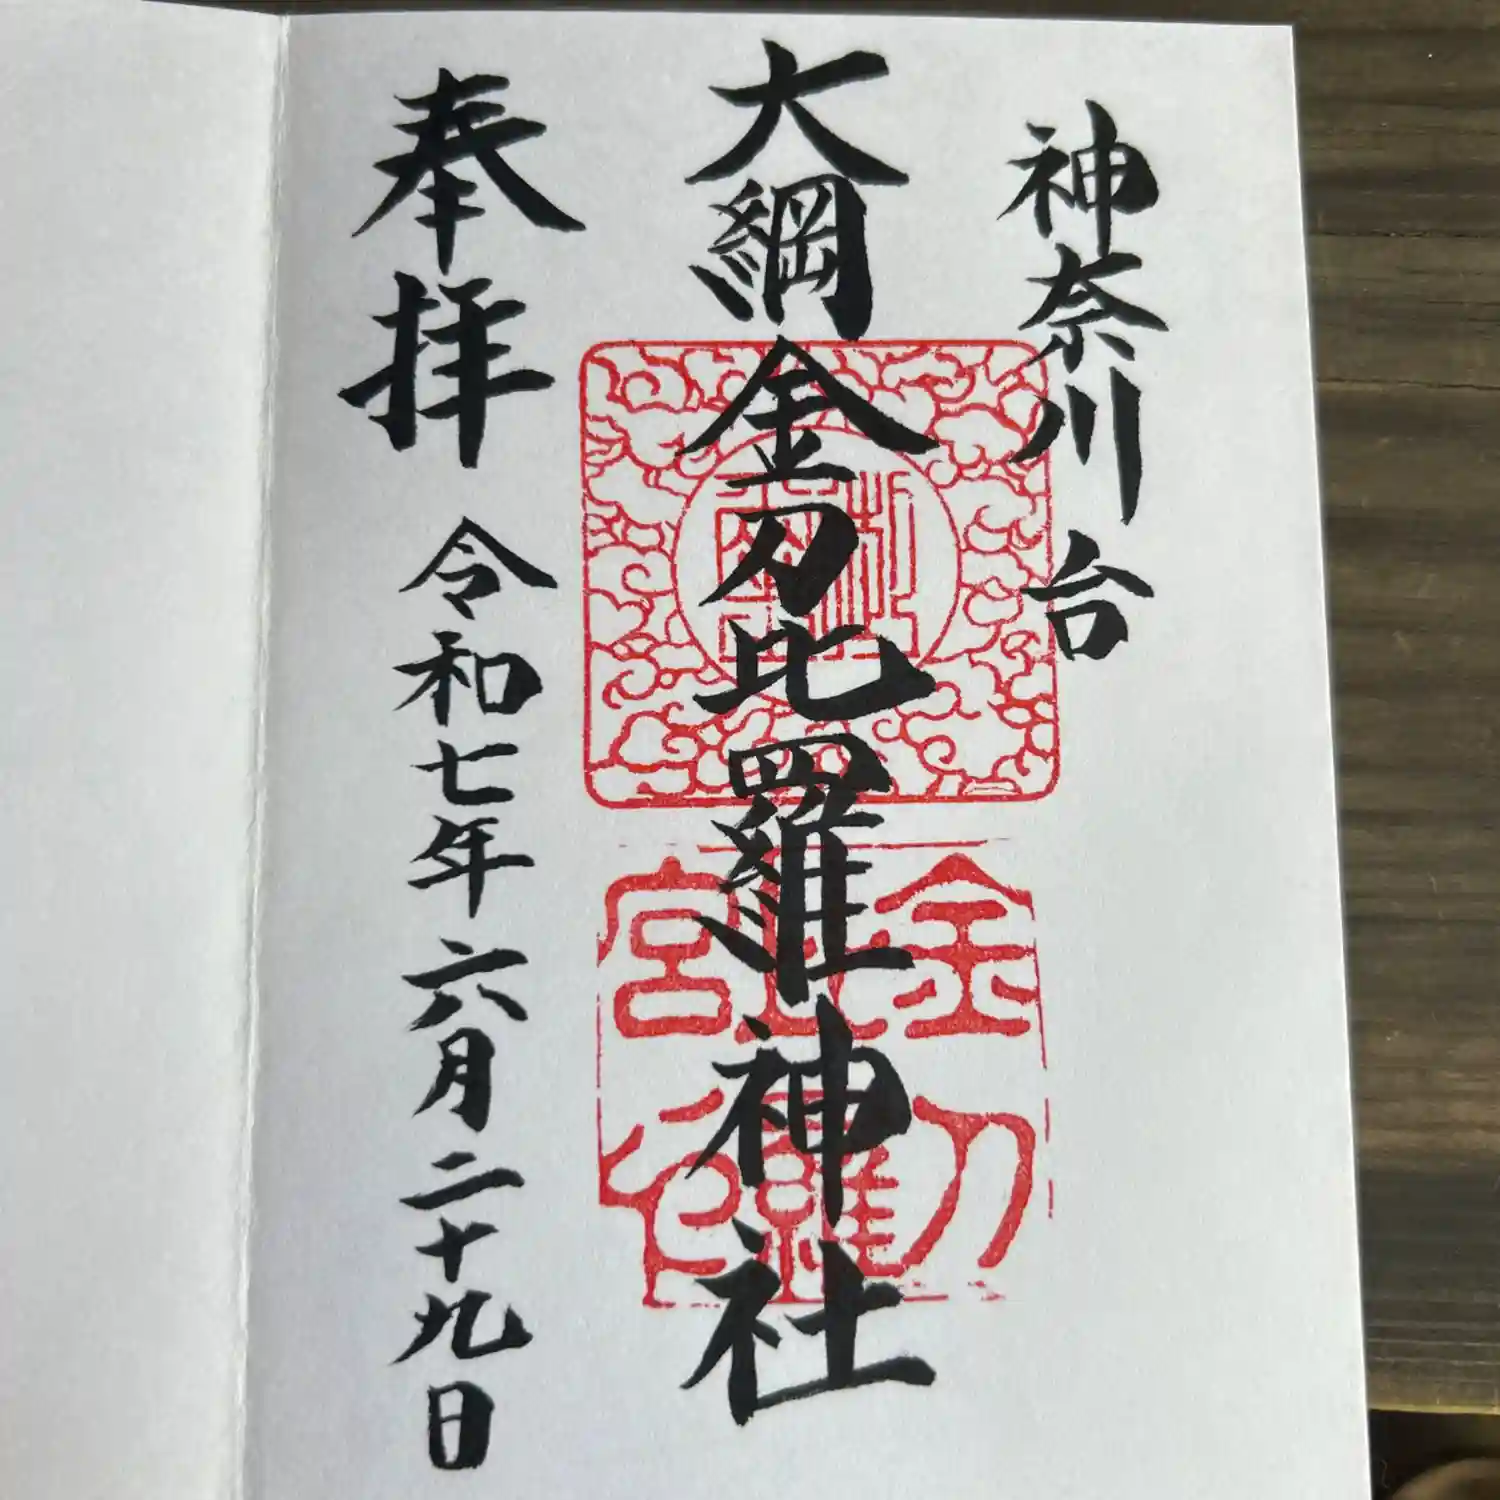 神奈川台
大綱金刀比羅神社
奉拝
令和七年六月二十九日
金刀比羅宮